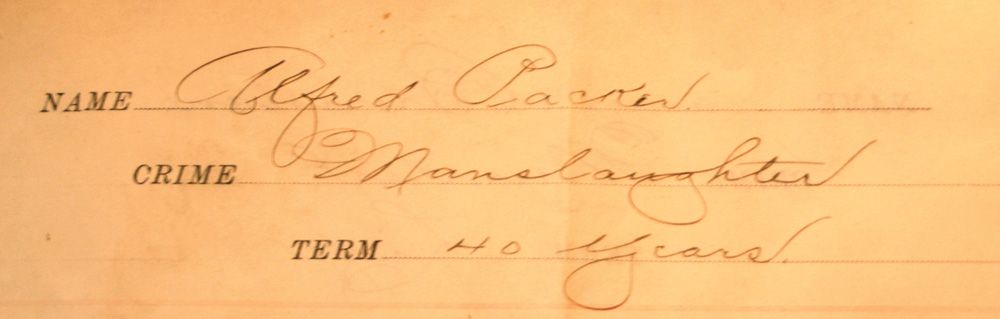 NAME Alfred Packer.
CRIME Manslaughter
TERM 40 Years.